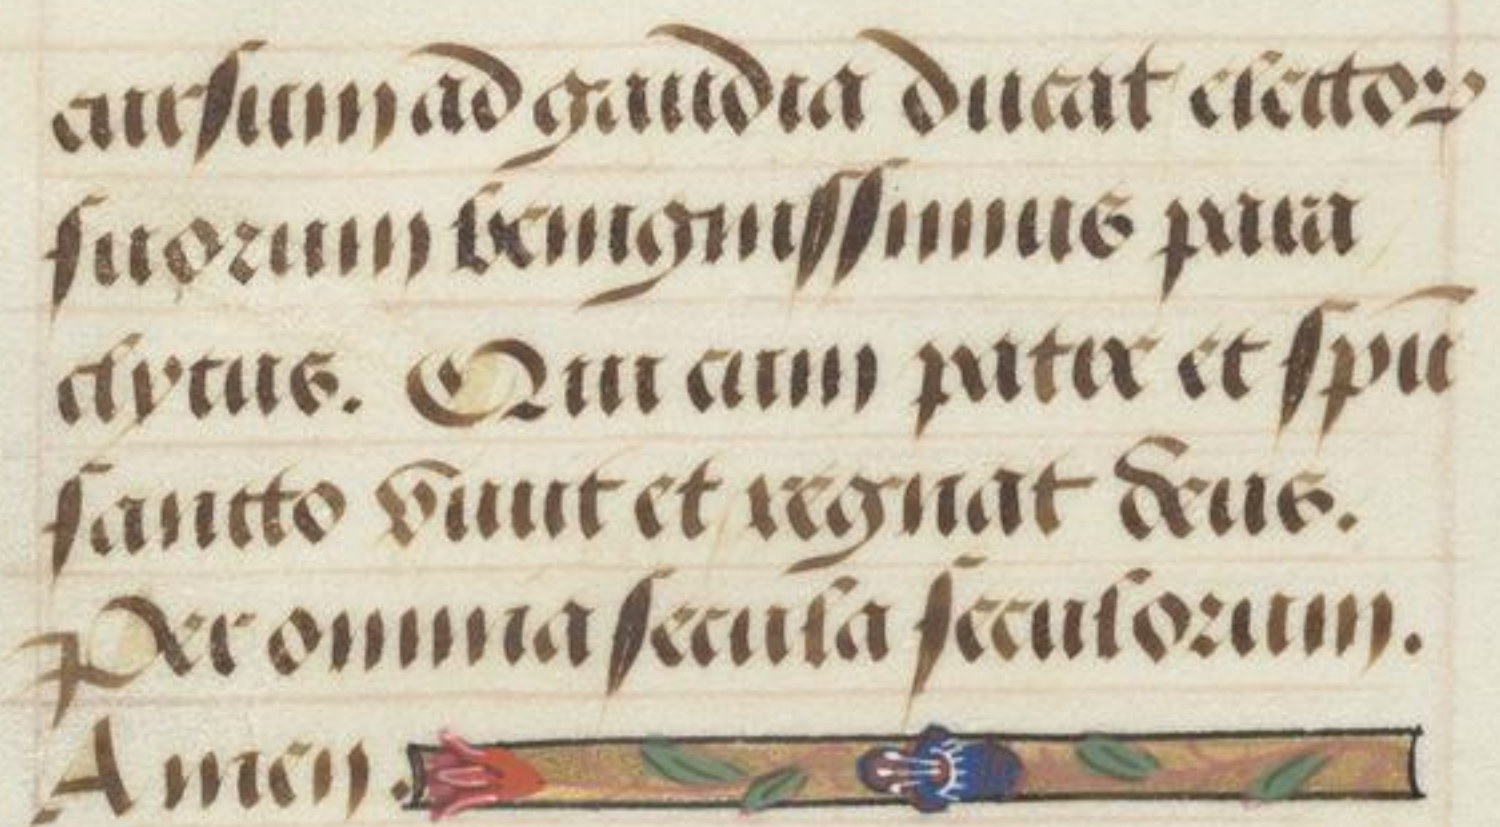 cursum ad gaudia ducat electoꝝ
suorum benignissimus para
clytus. Qui cum patre et spū
sancto viuit et regnat deus.
Per omnia secula seculorum.
Amen.